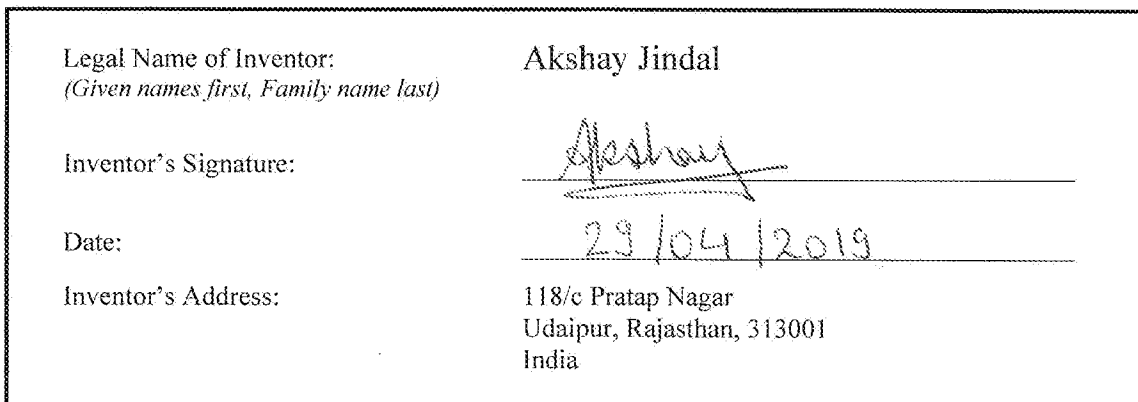 Legal Name of Inventor: Akshay Jindal
(Given names first, Family name last)
Inventor's Signature: Akshay
Date: 29/04/2019
Inventor's Address: 118/c Pratap Nagar
Udaipur, Rajasthan, 313001
India